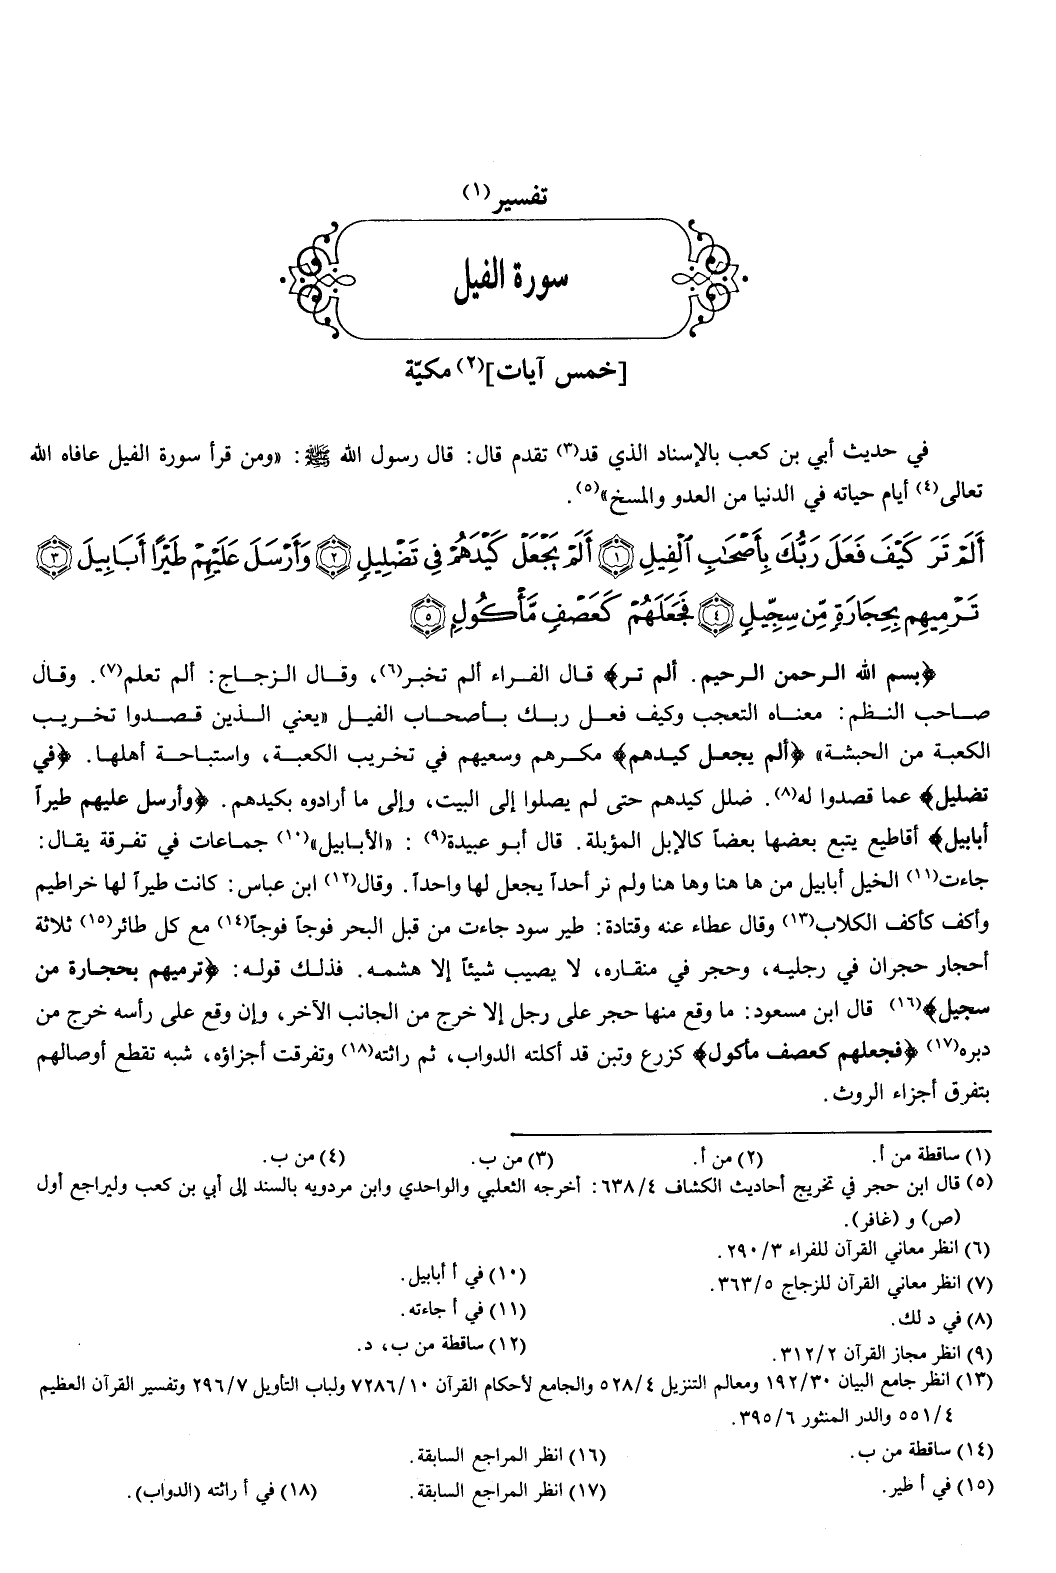 تفسير(١)
سورة الفيل
[خمس آيات](٢) مكيّة
في حديث أبي بن كعب بالإسناد الذي قد(٣) تقدم قال: قال رسول الله ﷺ: «ومن قرأ سورة الفيل عافاه الله
تعالى(٤) أيام حياته في الدنيا من العدو والمسخ»(٥).
أَلَمْ تَرَ كَيْفَ فَعَلَ رَبُّكَ بِأَصْحَٰبِ ٱلْفِيلِ ١ أَلَمْ يَجْعَلْ كَيْدَهُمْ فِى تَضْلِيلٍ ٢ وَأَرْسَلَ عَلَيْهِمْ طَيْرًا أَبَابِيلَ ٣
تَرْمِيهِم بِحِجَارَةٍ مِّن سِجِّيلٍ ٤ فَجَعَلَهُمْ كَعَصْفٍ مَّأْكُولٍ ٥
﴿بسم الله الرحمن الرحيم. ألم تر﴾ قال الفراء ألم تخبر(٦)، وقال الزجاج: ألم تعلم(٧). وقال
صاحب النظم: معناه التعجب وكيف فعل ربك بأصحاب الفيل «يعني الذين قصدوا تخريب
الكعبة من الحبشة» ﴿ألم يجعل كيدهم﴾ مكرهم وسعيهم في تخريب الكعبة، واستباحة أهلها. ﴿في
تضليل﴾ عما قصدوا له(٨). ضلل كيدهم حتى لم يصلوا إلى البيت، وإلى ما أرادوه بكيدهم. ﴿وأرسل عليهم طيراً
أبابيل﴾ أقاطيع يتبع بعضها بعضاً كالإبل المؤبلة. قال أبو عبيدة(٩) : «الأبابيل»(١٠) جماعات في تفرقة يقال:
جاءت(١١) الخيل أبابيل من ها هنا وها هنا ولم نر أحداً يجعل لها واحداً. وقال(١٢) ابن عباس: كانت طيراً لها خراطيم
وأكف كأكف الكلاب(١٣) وقال عطاء عنه وقتادة: طير سود جاءت من قبل البحر فوجاً فوجاً(١٤) مع كل طائر(١٥) ثلاثة
أحجار حجران في رجليه، وحجر في منقاره، لا يصيب شيئاً إلا هشمه. فذلك قوله: ﴿ترميهم بحجارة من
سجيل﴾(١٦) قال ابن مسعود: ما وقع منها حجر على رجل إلا خرج من الجانب الآخر، وإن وقع على رأسه خرج من
دبره(١٧) ﴿فجعلهم كعصف مأكول﴾ كزرع وتبن قد أكلته الدواب، ثم راثته(١٨) وتفرقت أجزاؤه، شبه تقطع أوصالهم
بتفرق أجزاء الروث.
(١) ساقطة من أ. (٢) من أ. (٣) من ب. (٤) من ب.
(٥) قال ابن حجر في تخريج أحاديث الكشاف ٦٣٨/٤: أخرجه الثعلبي والواحدي وابن مردويه بالسند إلى أبي بن كعب وليراجع أول
(ص) و (غافر).
(٦) انظر معاني القرآن للفراء ٢٩٠/٣.
(٧) انظر معاني القرآن للزجاج ٣٦٣/٥.
(٨) في د لك.
(٩) انظر مجاز القرآن ٣١٢/٢.
(١٠) في أ أبابيل.
(١١) في أ جاءته.
(١٢) ساقطة من ب، د.
(١٣) انظر جامع البيان ١٩٢/٣٠ ومعالم التنزيل ٥٢٨/٤ والجامع لأحكام القرآن ٧٢٨٦/١٠ ولباب التأويل ٢٩٦/٧ وتفسير القرآن العظيم
٥٥١/٤ والدر المنثور ٣٩٥/٦.
(١٤) ساقطة من ب.
(١٥) في أ طير.
(١٦) انظر المراجع السابقة.
(١٧) انظر المراجع السابقة.
(١٨) في أ راثته (الدواب).